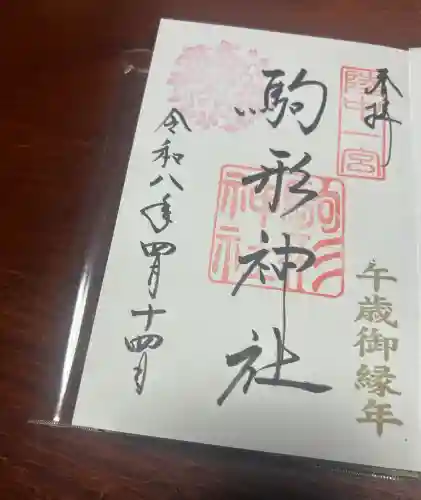 奉拝
陸中一宮
午歳御縁年
駒形神社
駒形神社
令和八年四月十四日